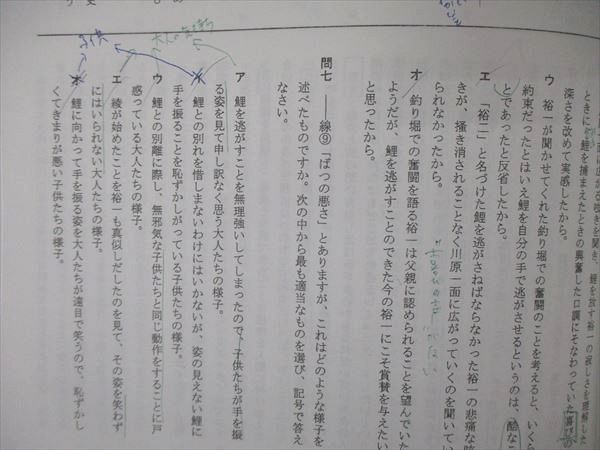 ときに、鯉を捕まえたときの興奮した口調にそなわっていた喜び
深さを改めて実感したから。
ウ 裕一が聞かせてくれた釣り堀での奮闘のことを考えると、いくら
約束だったとはいえ鯉を自分の手で逃がさせるというのは、酷なこ
とであったと反省したから。
エ 「裕二」と名づけた鯉を逃がさねばならなかった裕一の悲痛な
きが、掻き消されることなく川原一面に広がっていくのを聞いてい
られなかったから。
オ 釣り堀での奮闘を語る裕一は父親に認められることを望んでいた
ようだが、鯉を逃がすことのできた今の裕一にこそ賞賛を与えたい
と思ったから。
問七 ――線⑨「ばつの悪さ」とありますが、これはどのような様子を
述べたものですか。次の中から最も適当なものを選び、記号で答え
なさい。
ア 鯉を逃がすことを無理強いしてしまったので、子供たちが手を振
る姿を見て申し訳なく思う大人たちの様子。
イ 鯉との別れを惜しまないわけにはいかないが、姿の見えない鯉に
手を振ることを恥ずかしがっている子供たちの様子。
ウ 鯉との別離に際し、無邪気な子供たちと同じ動作をすることに戸
惑っている大人たちの様子。
エ 綾が始めたことを裕一も真似しだしたのを見て、その姿を笑わず
にはいられない大人たちの様子。
オ 鯉に向かって手を振る姿を大人たちが遠目で笑うので、恥ずかし
くてきまりが悪い子供たちの様子。
子供